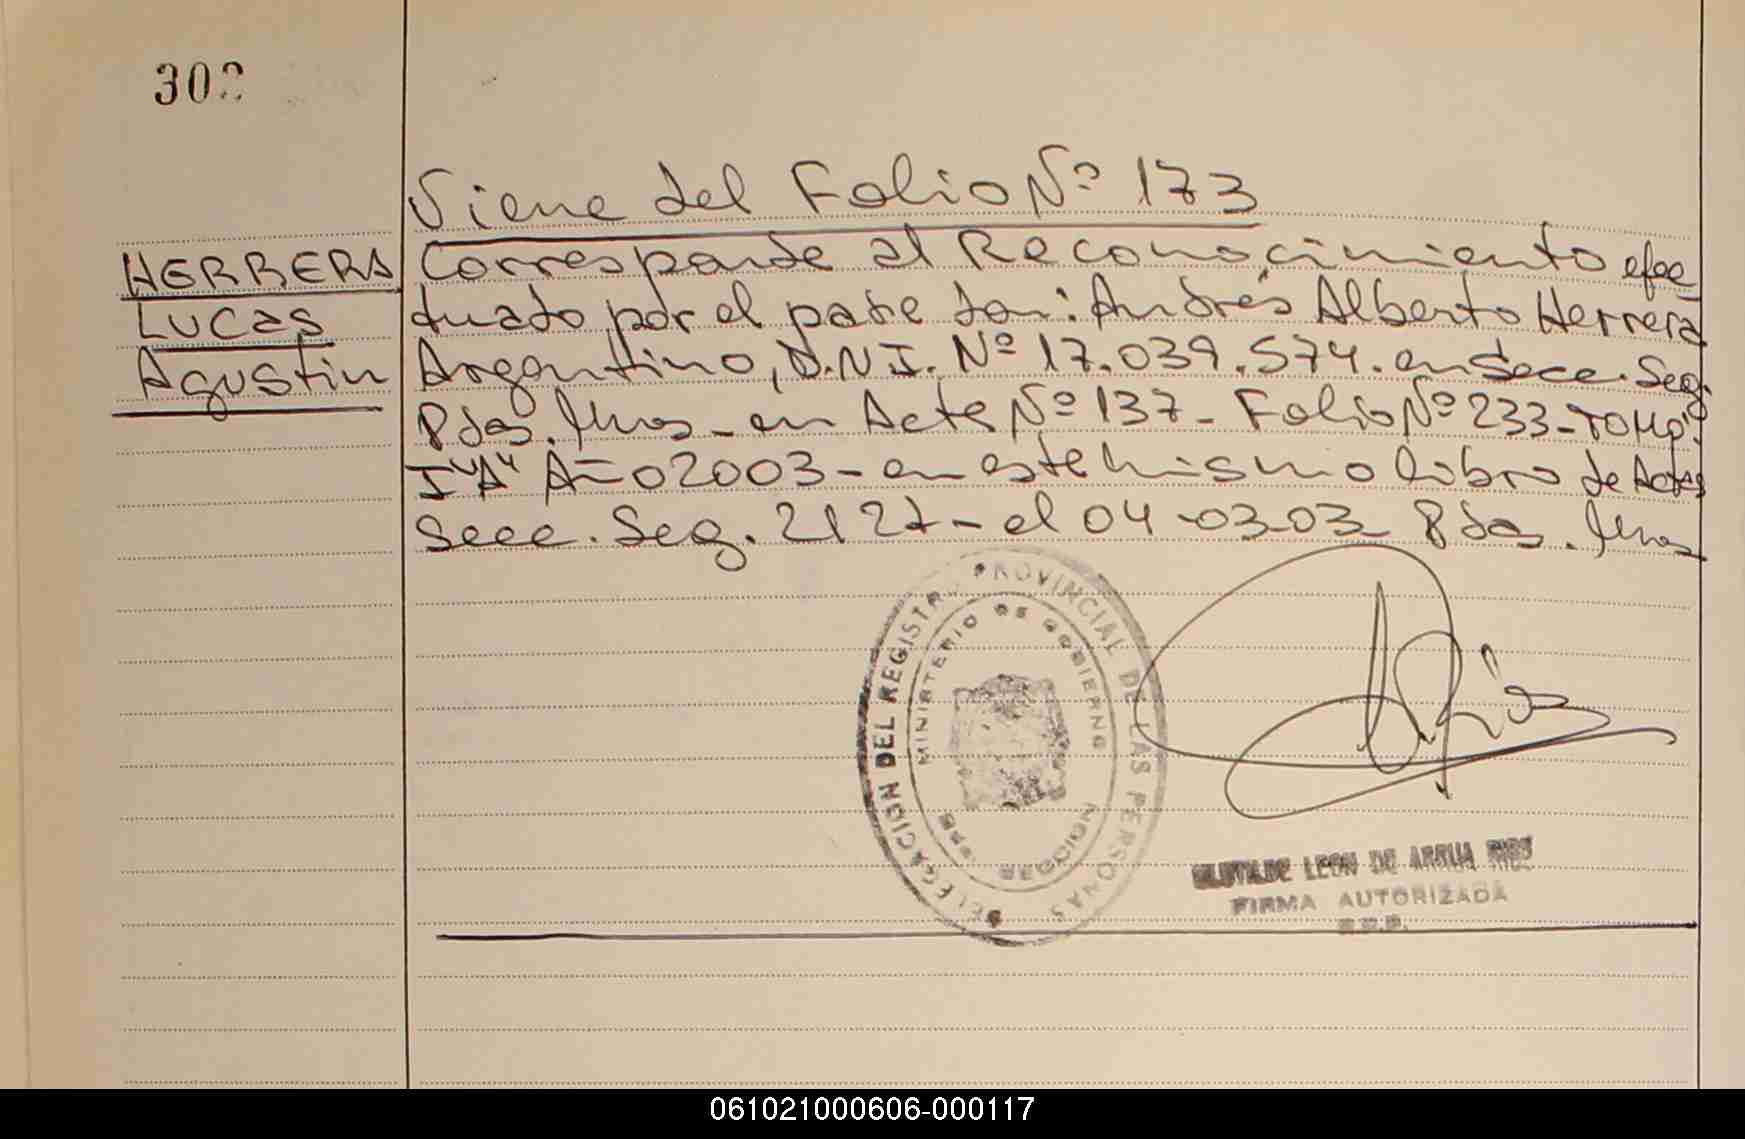 302
Viene del Folio Nº 173
HERRERA
LUCAS
Agustin
Corresponde al Reconocimiento efec
tuado por el padre don: Andrés Alberto Herrera
Argentino, D.N.I. Nº 17.039.574. en Secc. Seg.
Pdas. Mnas - en Acta Nº 137 - Folio Nº 233 - TOMO.
I "A" AÑO 2003 - en este mismo libro de Actas
Secc. Seg. 2127 - el 04-03-03 Pdas. Mnas
DELEGACION DEL REGISTRO PROVINCIAL DE LAS PERSONAS
MINISTERIO DE GOBIERNO
A Rios
LEON DE ARRUA RIOS
FIRMA AUTORIZADA
061021000606-000117